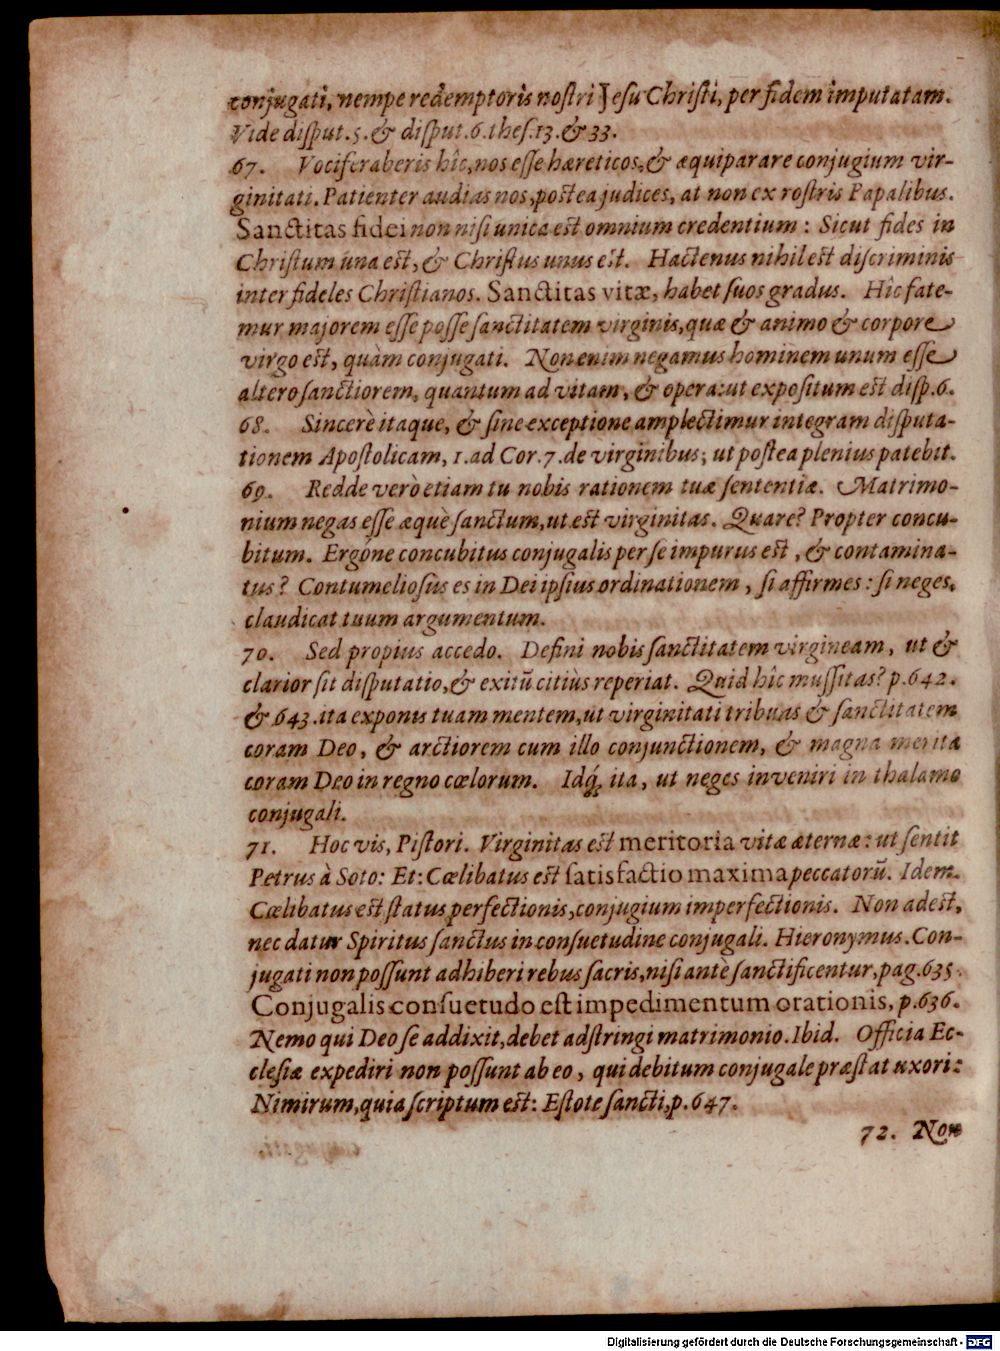 conjugati, nempe redemptoris nostri Jesu Christi, per fidem imputatam.
Vide disput. 5. & disput. 6. thes. 13. & 33.
67. Vociferaberis hîc, nos esse hæreticos, & æquiparare conjugium vir-
ginitati. Patienter audias nos, postea judices, at non ex rostris Papalibus.
Sanctitas fidei non nisi unica est omnium credentium: Sicut fides in
Christum una est, & Christus unus est. Hactenus nihil est discriminis
inter fideles Christianos. Sanctitas vitæ, habet suos gradus. Hîc fate-
mur majorem esse posse sanctitatem virginis, quæ & animo & corpore
virgo est, quàm conjugati. Non enim negamus hominem unum esse
altero sanctiorem, quantum ad vitam, & opera: ut expositum est disp. 6.
68. Sincerè itaque, & sine exceptione amplectimur integram disputa-
tionem Apostolicam, 1. ad Cor. 7. de virginibus; ut postea plenius patebit.
69. Redde verò etiam tu nobis rationem tuæ sententiæ. Matrimo-
nium negas esse æquè sanctum, ut est virginitas. Quare? Propter concu-
bitum. Ergóne concubitus conjugalis per se impurus est, & contamina-
tus? Contumeliosus es in Dei ipsius ordinationem, si affirmes: si neges,
claudicat tuum argumentum.
70. Sed propius accedo. Defini nobis sanctitatem virgineam, ut &
clarior sit disputatio, & exitũ citiùs reperiat. Quid hîc mussitas? p. 642.
& 643. ita exponis tuam mentem, ut virginitati tribuas & sanctitatem
coram Deo, & arctiorem cum illo conjunctionem, & magna merita
coram Deo in regno cœlorum. Idq́; ita, ut neges inveniri in thalamo
conjugali.
71. Hoc vis, Pistori. Virginitas est meritoria vitæ æternæ: ut sentit
Petrus à Soto: Et: Cœlibatus est satisfactio maxima peccatorũ. Idem.
Cœlibatus est status perfectionis, conjugium imperfectionis. Non adest,
nec datur Spiritus sanctus in consuetudine conjugali. Hieronymus. Con-
jugati non possunt adhiberi rebus sacris, nisi antè sanctificentur, pag. 635.
Conjugalis consuetudo est impedimentum orationis, p. 636.
Nemo qui Deo se addixit, debet adstringi matrimonio. Ibid. Officia Ec-
clesiæ expediri non possunt ab eo, qui debitum conjugale præstat uxori:
Nimirum, quia scriptum est: Estote sancti, p. 647.
72. Non
Digitalisierung gefördert durch die Deutsche Forschungsgemeinschaft - DFG